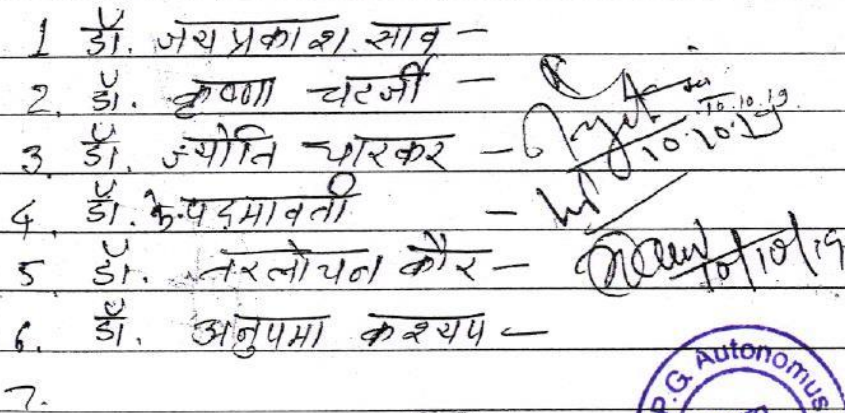 1 डॉ. जय प्रकाश साव -
2. डॉ. कृष्णा चटर्जी -
3. डॉ. ज्योति धारकर - 10.10.19
4. डॉ. के. पदमावती -
5 डॉ. तरलोचन कौर - 10/10/19
6. डॉ. अनुपमा कश्यप -
7.
P.G. Autonomus